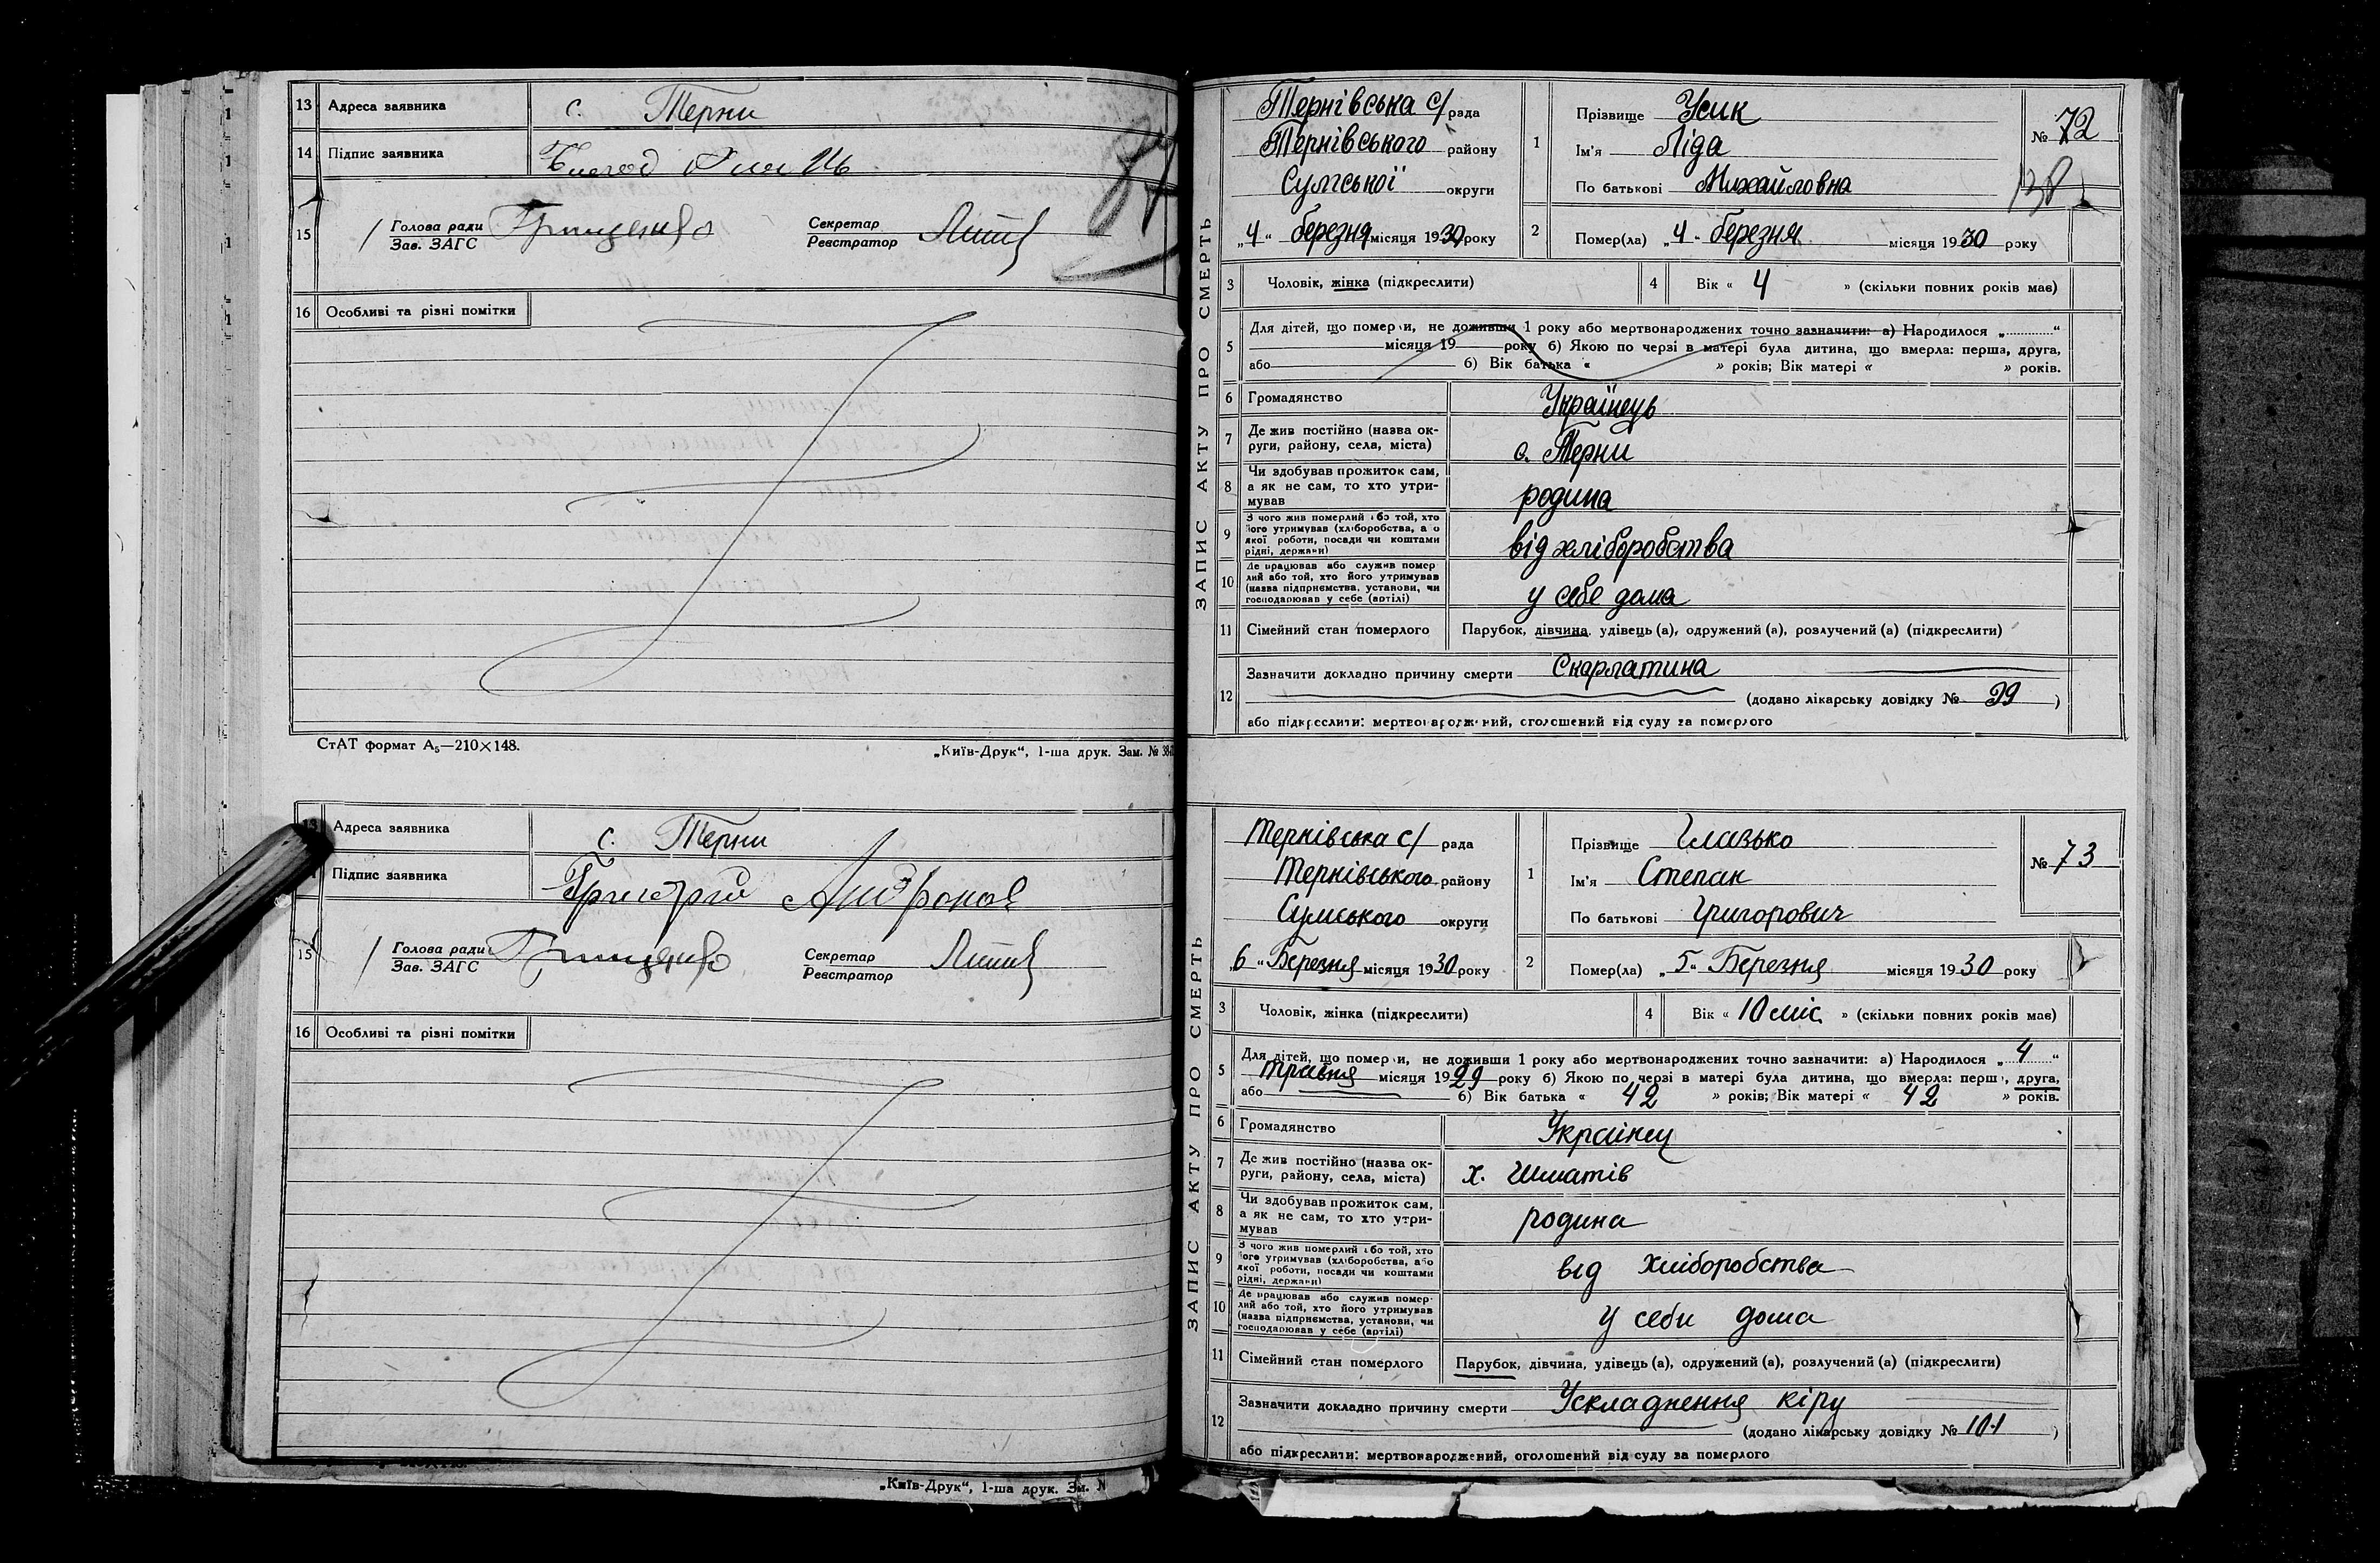 13 Адреса заявника с. Терни
14 Підпис заявника
15 Голова ради Грищенко Секретар
Зав. ЗАГС Реєстратор
16 Особливі та різні помітки
СтАТ формат А5—210×148. „Київ-Друк“, 1-ша друк. Зам. №
Адреса заявника с. Терни
Підпис заявника Григорій
15 Голова ради Грищенко Секретар
Зав. ЗАГС Реєстратор
16 Особливі та різні помітки
„Київ-Друк“, 1-ша друк. Зм. N
ЗАПИС АКТУ ПРО СМЕРТЬ
Тернівська с/ рада
Тернівського району
Сумської округи
„4“ березня місяця 1930 року
1 Прізвище Усик
Ім'я Ліда
По батькові Михайловна
№ 72
138
2 Помер(ла) „4“ березня місяця 1930 року
3 Чоловік, жінка (підкреслити) 4 Вік « 4 » (скільки повних років має)
5 Для дітей, що померли, не доживши 1 року або мертвонароджених точно зазначити: а) Народилося „............“
місяця 19 року б) Якою по черзі в матері була дитина, що вмерла: перша, друга,
або б) Вік батька « » років; Вік матері « » років.
6 Громадянство Українець
7 Де жив постійно (назва ок-
руги, району, села, міста) с. Терни
8 Чи здобував прожиток сам,
а як не сам, то хто утри-
мував родина
9 З чого жив померлий або той, хто
його утримував (хліборобства, або
якої роботи, посади чи коштами
рідні, держави) від хліборобства
10 Де працював або служив помер
лий або той, хто його утримував
(назва підприємства, установи, чи
господарював у себе (артілі) у себе дома
11 Сімейний стан померлого Парубок, дівчина, удівець (а), одружений (а), розлучений (а) (підкреслити)
12 Зазначити докладно причину смерти Скарлатина
(додано лікарську довідку № 99 )
або підкреслити: мертвонароджений, оголошений від суду за померлого
ЗАПИС АКТУ ПРО СМЕРТЬ
Тернівська с/ рада
Тернівського району
Сумського округи
„6“ Березня місяця 1930 року
1 Прізвище Глазько
Ім'я Степан
По батькові Григорович
№ 73
2 Помер(ла) „5“ Березня місяця 1930 року
3 Чоловік, жінка (підкреслити) 4 Вік « 10 міс » (скільки повних років має)
5 Для дітей, що померли, не доживши 1 року або мертвонароджених точно зазначити: а) Народилося „4“
травня місяця 1929 року б) Якою по черзі в матері була дитина, що вмерла: перша, друга,
або б) Вік батька « 42 » років; Вік матері « 42 » років.
6 Громадянство Українец
7 Де жив постійно (назва ок-
руги, району, села, міста) х. Шматів
8 Чи здобував прожиток сам,
а як не сам, то хто утри-
мував родина
9 З чого жив померлий або той, хто
його утримував (хліборобства, або
якої роботи, посади чи коштами
рідні, держави) від хліборобства
10 Де працював або служив помер-
лий або той, хто його утримував
(назва підприємства, установи, чи
господарював у себе (артілі) у себи дома
11 Сімейний стан померлого Парубок, дівчина, удівець (а), одружений (а), розлучений (а) (підкреслити)
12 Зазначити докладно причину смерти Ускладнення кіру
(додано лікарську довідку № 101 )
або підкреслити: мертвонароджений, оголошений від суду за померлого